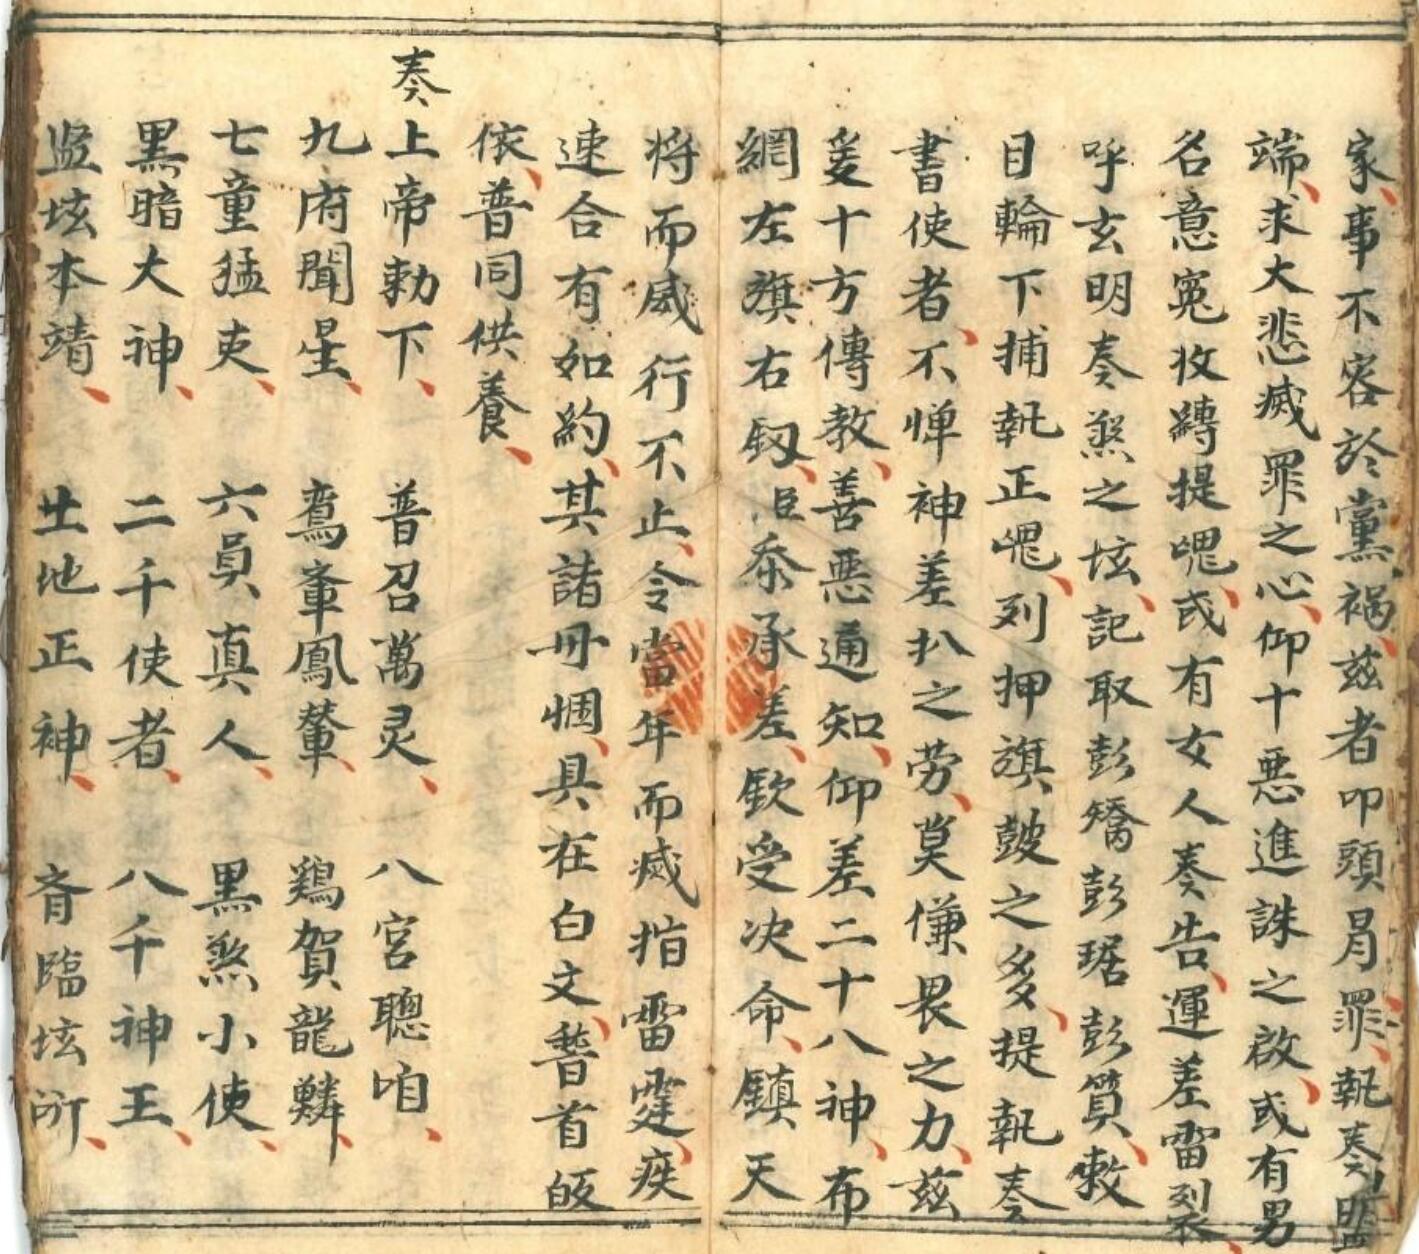 家事不容於黨禍茲者叩頭冐罪執奏盟
端求大悲滅罪之心仰十惡進誅之啟或有男
名意寃收轉提魂或有女人奏告運差雷烈
呼玄明奏煞之垓記取彭矯彭琚彭質敕
目輪下捕執正魂列押旗鼓之多提執奏
書使者不惮神差扒之劳莫慊畏之力茲
爰十方傳教善惡通知仰差二十八神布
網左旗右釼臣忝承差欽受决命鎮天
将而威行不止令當年而滅指雷霆疾
速合有如約其諸丹悃具在白文𥡴首皈
依普同供養
奏上帝勅下 普召萬灵 八宮聰咱
九府聞星 鸞輦鳳輦 鶏賀龍鱗
七童猛吏 六員真人 黒煞小使
黒暗大神 二千使者 八千神王
监垓本靖 土地正神 齐臨垓所